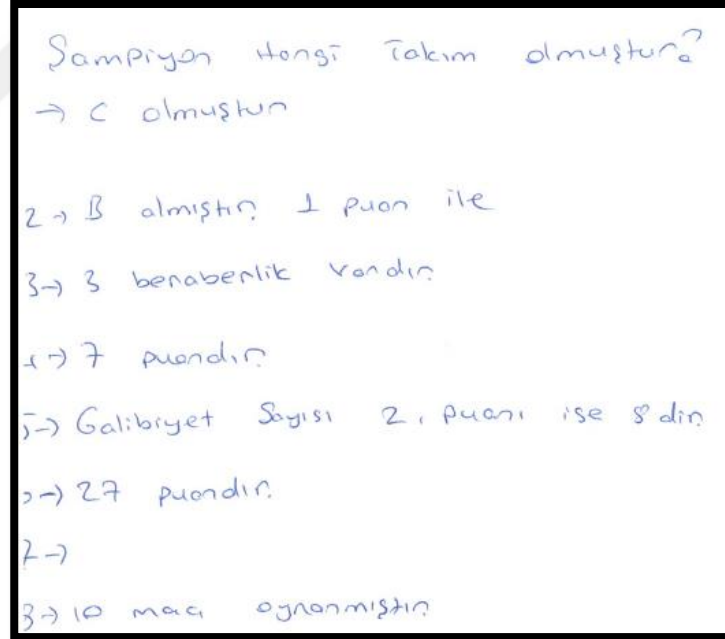 Şampiyon Hangi Takım olmuştur?
→ C olmuştur
2 → B almıştır 1 puan ile
3 → 3 beraberlik vardır
4 → 7 puandır
5 → Galibiyet Sayısı 2, puanı ise 8 dir
→ 27 puandır.
7 →
8 → 10 maç oynanmıştır